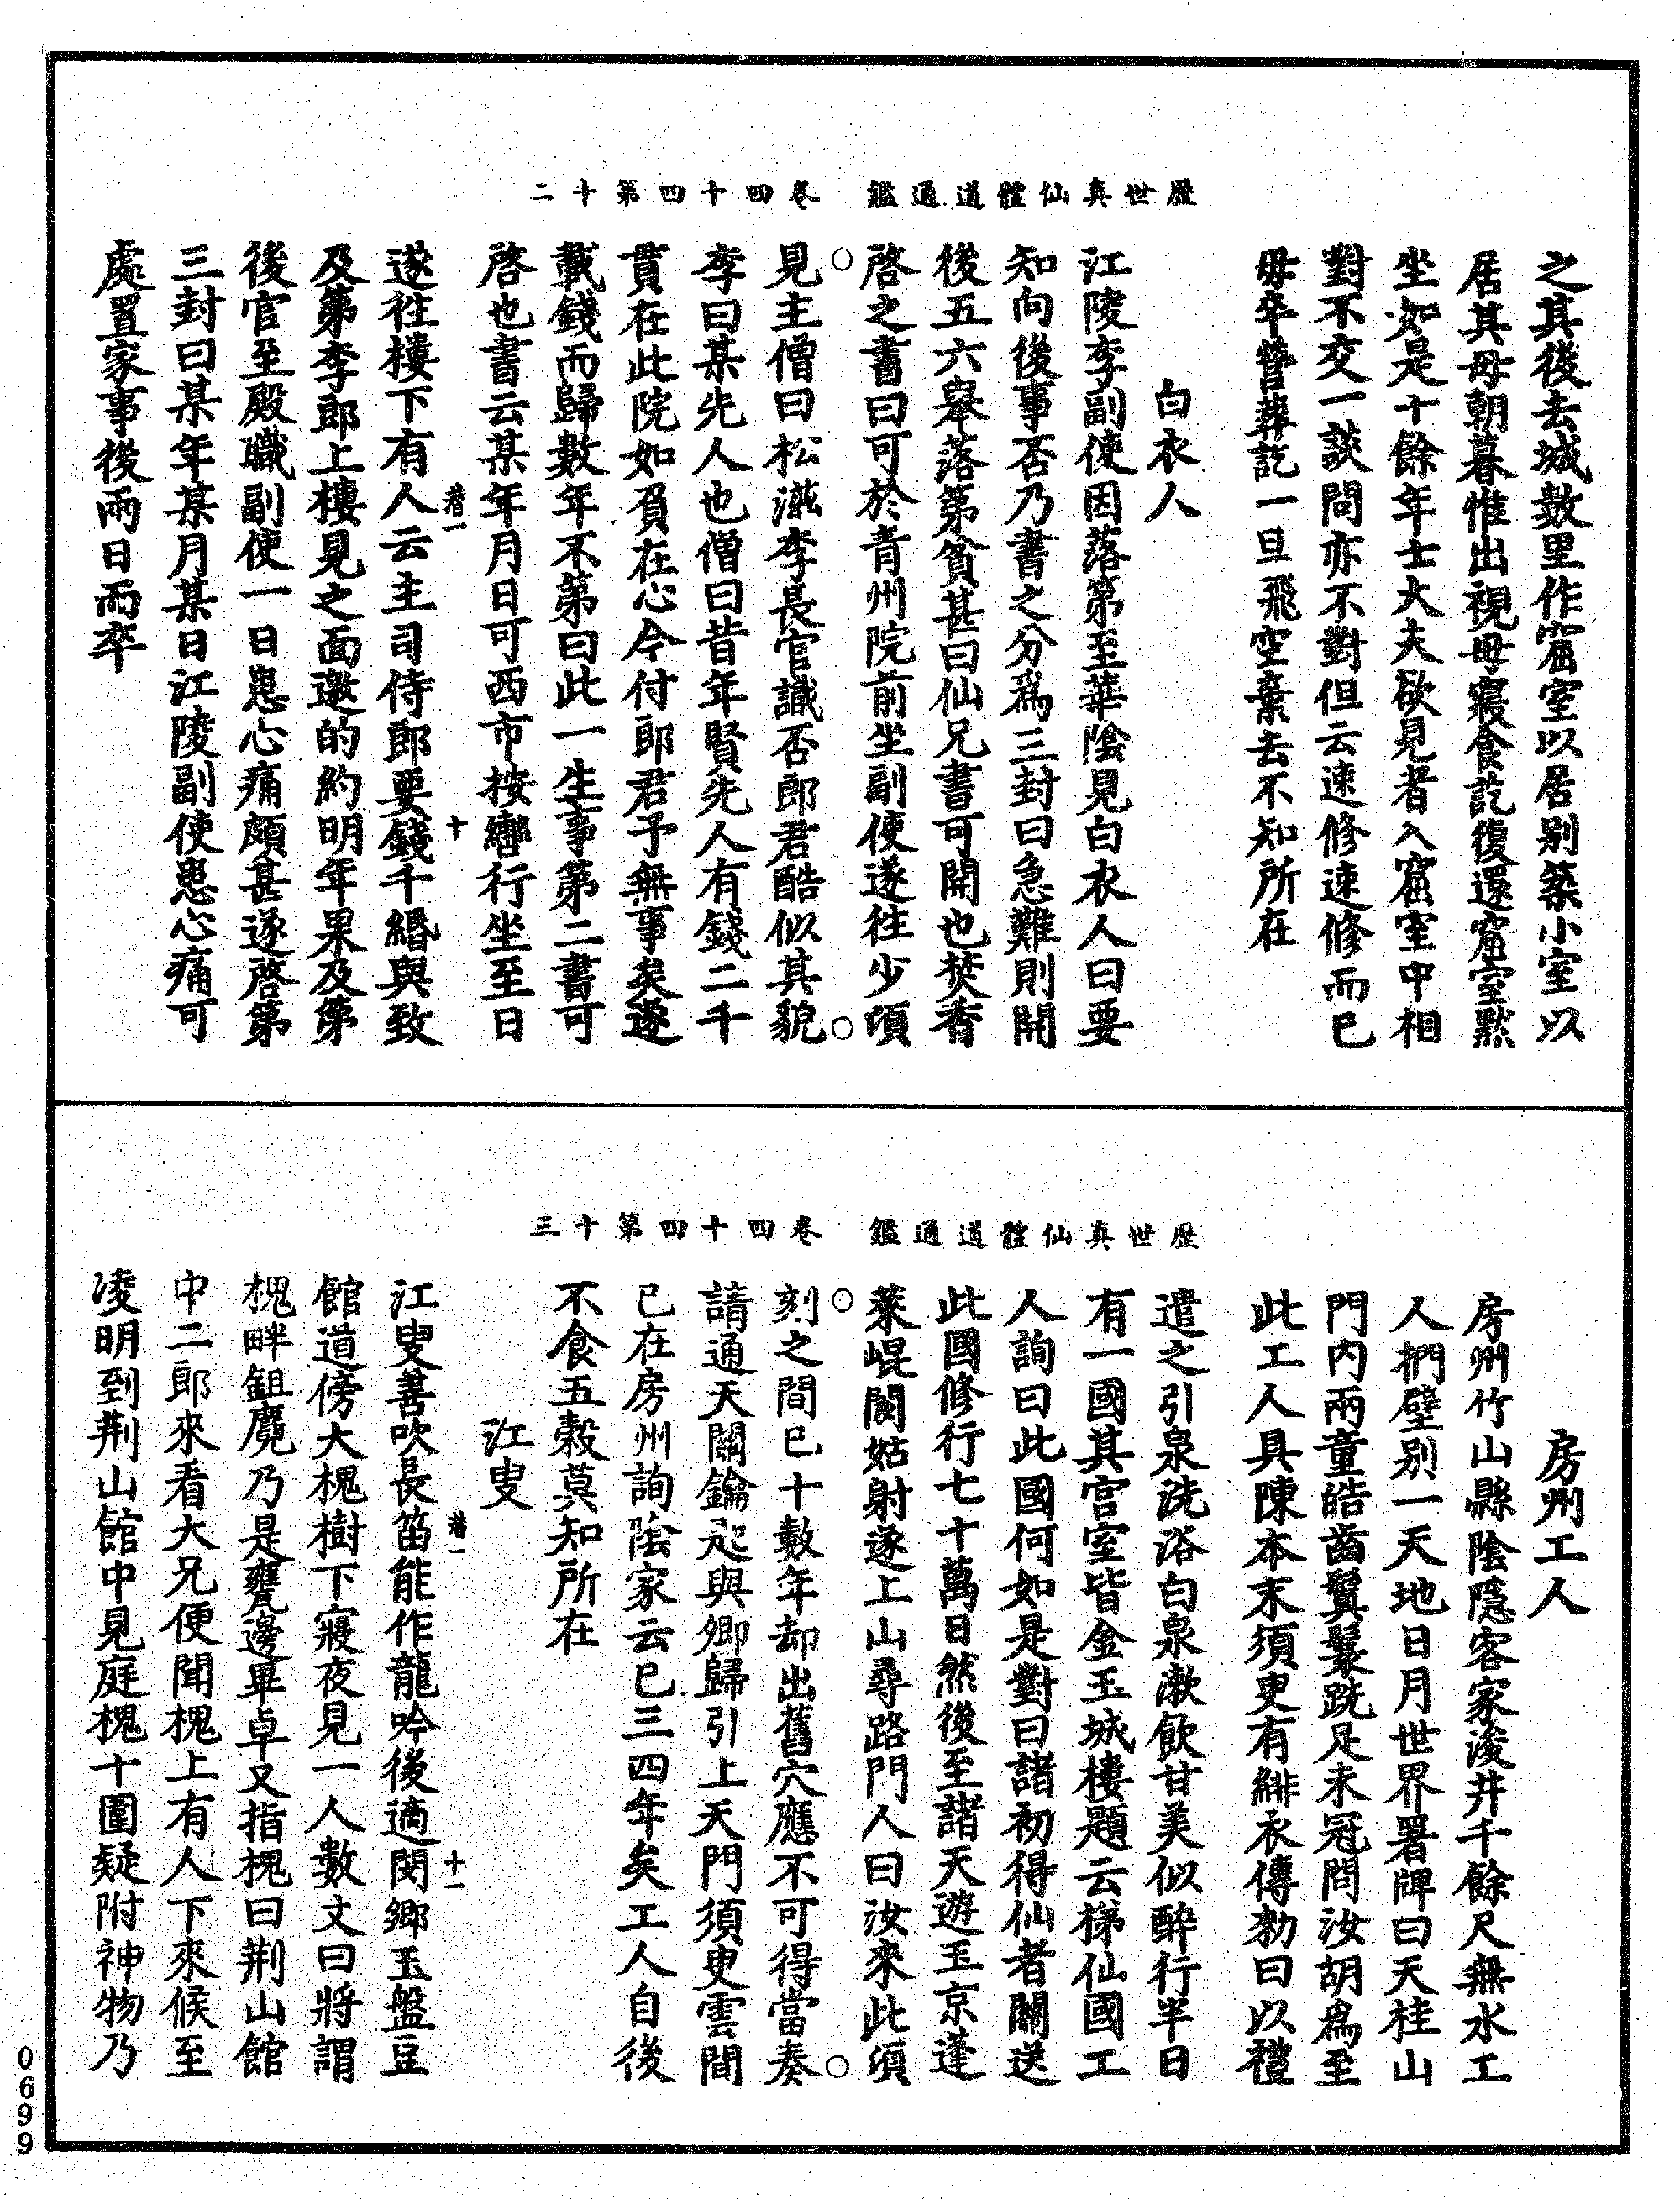 歷世真仙體道通鑑　卷四十四第十二
之其後去城數里作窟室以居別築小室以
居其母朝暮惟出視母寢食訖復還窟室默
坐如是十餘年士大夫欲見者入窟室中相
對不交一談問亦不對但云速修速修而已
母卒營葬訖一旦飛空棄去不知所在
白衣人
江陵李副使因落第至華陰見白衣人曰要
知向後事否乃書之分為三封曰急難則開
後五六舉落第貧甚曰仙兄書可開也焚香
啓之書曰可於青州院前坐副使遂往少頃
見主僧曰松滋李長官識否郎君酷似其貌
李曰某先人也僧曰昔年賢先人有錢二千
貫在此院如負在心今付郎君予無事矣遂
載錢而歸數年不第曰此一生事第二書可
啓也書云某年月日可西市按轡行坐至日
㴠一　十
遂往樓下有人云主司侍郎要錢千緡與致
及第李郎上樓見之面邀的約明年果及第
後官至殿職副使一日患心痛頗甚遂啓第
三封曰某年某月某日江陵副使患心痛可
處置家事後兩日而卒
歷世真仙體道通鑑　卷四十四第十三
房州工人
房州竹山縣陰隱客家浚井千餘尺無水工
人捫壁別一天地日月世界署牌曰天桂山
門內兩童皓齒鬒鬟跣足未冠問汝胡為至
此工人具陳本末須臾有緋衣傳勑曰以禮
遣之引泉洗浴白泉漱飲甘美似醉行半日
有一國其宮室皆金玉城樓題云梯仙國工
人詢曰此國何如是對曰諸初得仙者關送
此國修行七十萬日然後至諸天遊玉京蓬
萊崐閬姑射遂上山尋路門人曰汝來此頃
刻之間已十數年却出舊穴應不可得當奏
請通天關鑰匙與卿歸引上天門須臾雲間
已在房州詢陰家云已三四年矣工人自後
不食五穀莫知所在
江叟
十一
江叟善吹長笛能作龍吟後適閿鄉玉盤豆
館道傍大槐樹下寢夜見一人數丈曰將謂
槐畔鉏麑乃是甕邊畢卓又指槐曰荆山館
中二郎來看大兄便聞槐上有人下來候至
凌明到荆山館中見庭槐十圍疑附神物乃
0699